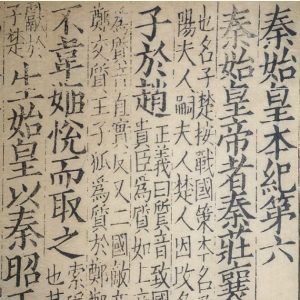 秦始皇本紀第六
秦始皇帝者秦莊襄
也名子楚按戰國策本名
陽夫人嗣夫人楚人因改名
子於趙
正義曰質音致國
貴臣爲質如上
爲質音直實反又二國敵
鄭交質王子狐爲質於鄭鄭
不韋姬悅而取之
索
也其
於子楚
生始皇以秦昭王